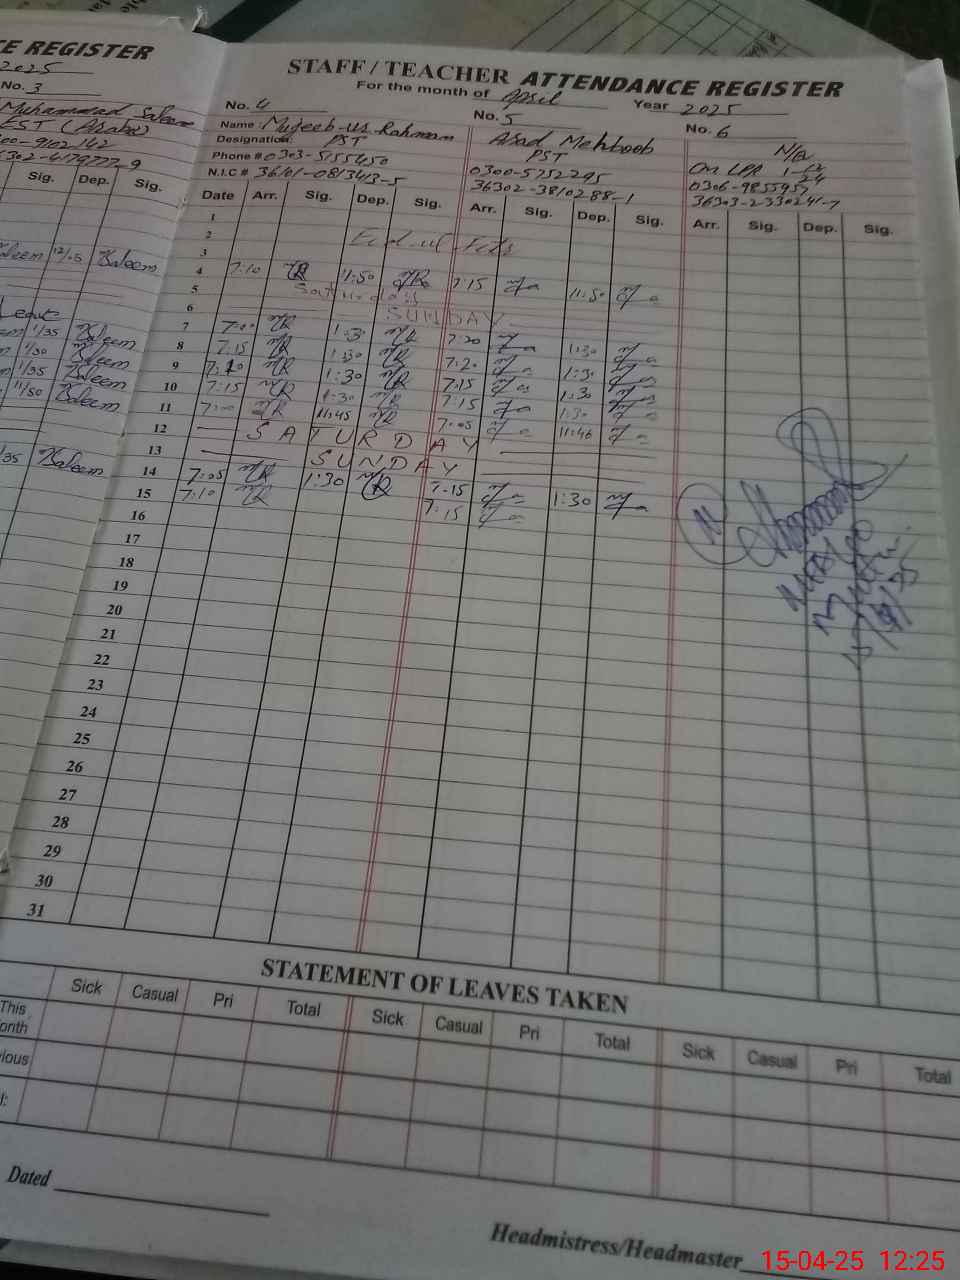 CE REGISTER
2025
No. 3
Muhammad Saleem
EST (Arabic)
00-9102142
302-4179777-9
Sig. Dep. Sig.
Saleem 12/05 Saleem
Leave
1/35 Saleem
1/30 Saleem
1/35 Saleem
11/50 Saleem
1/35 Saleem
STAFF / TEACHER ATTENDANCE REGISTER
For the month of April Year 2025
No. 4 No. 5 No. 6
Name: Mujeeb-us-Rahman Asad Mehboob N/a
Designation: PST PST On LPR
Phone # 0303-5155450 0300-5752795 0306-9855957
N.I.C # 36101-0813413-5 36302-3810288-1 36303-2330241-7
Date Arr. Sig. Dep. Sig. Arr. Sig. Dep. Sig. Arr. Sig. Dep. Sig.
1
2 Eid-ul-Fitr
3
4 7:10 MR 11:50 MR 7:15 11:50
5 Saturday
6 SUNDAY
7 7:00 MR 1:30 MR 7:20 1:30
8 7:15 MR 1:30 MR 7:20 1:30
9 7:10 MR 1:30 MR 7:15 1:30
10 7:15 MR 1:30 MR 7:15 1:30
11 7:00 MR 11:45 MR 7:05 11:46
12 SATURDAY
13 SUNDAY
14 7:05 MR 1:30 MR 7:15 1:30
15 7:10 MR 7:15
16
17
18
19
20
21
22
23
24
25
26
27
28
29
30
31
STATEMENT OF LEAVES TAKEN
Sick Casual Pri Total Sick Casual Pri Total Sick Casual Pri Total
This
onth
vious
l:
Dated
Headmistress/Headmaster
15-04-25 12:25